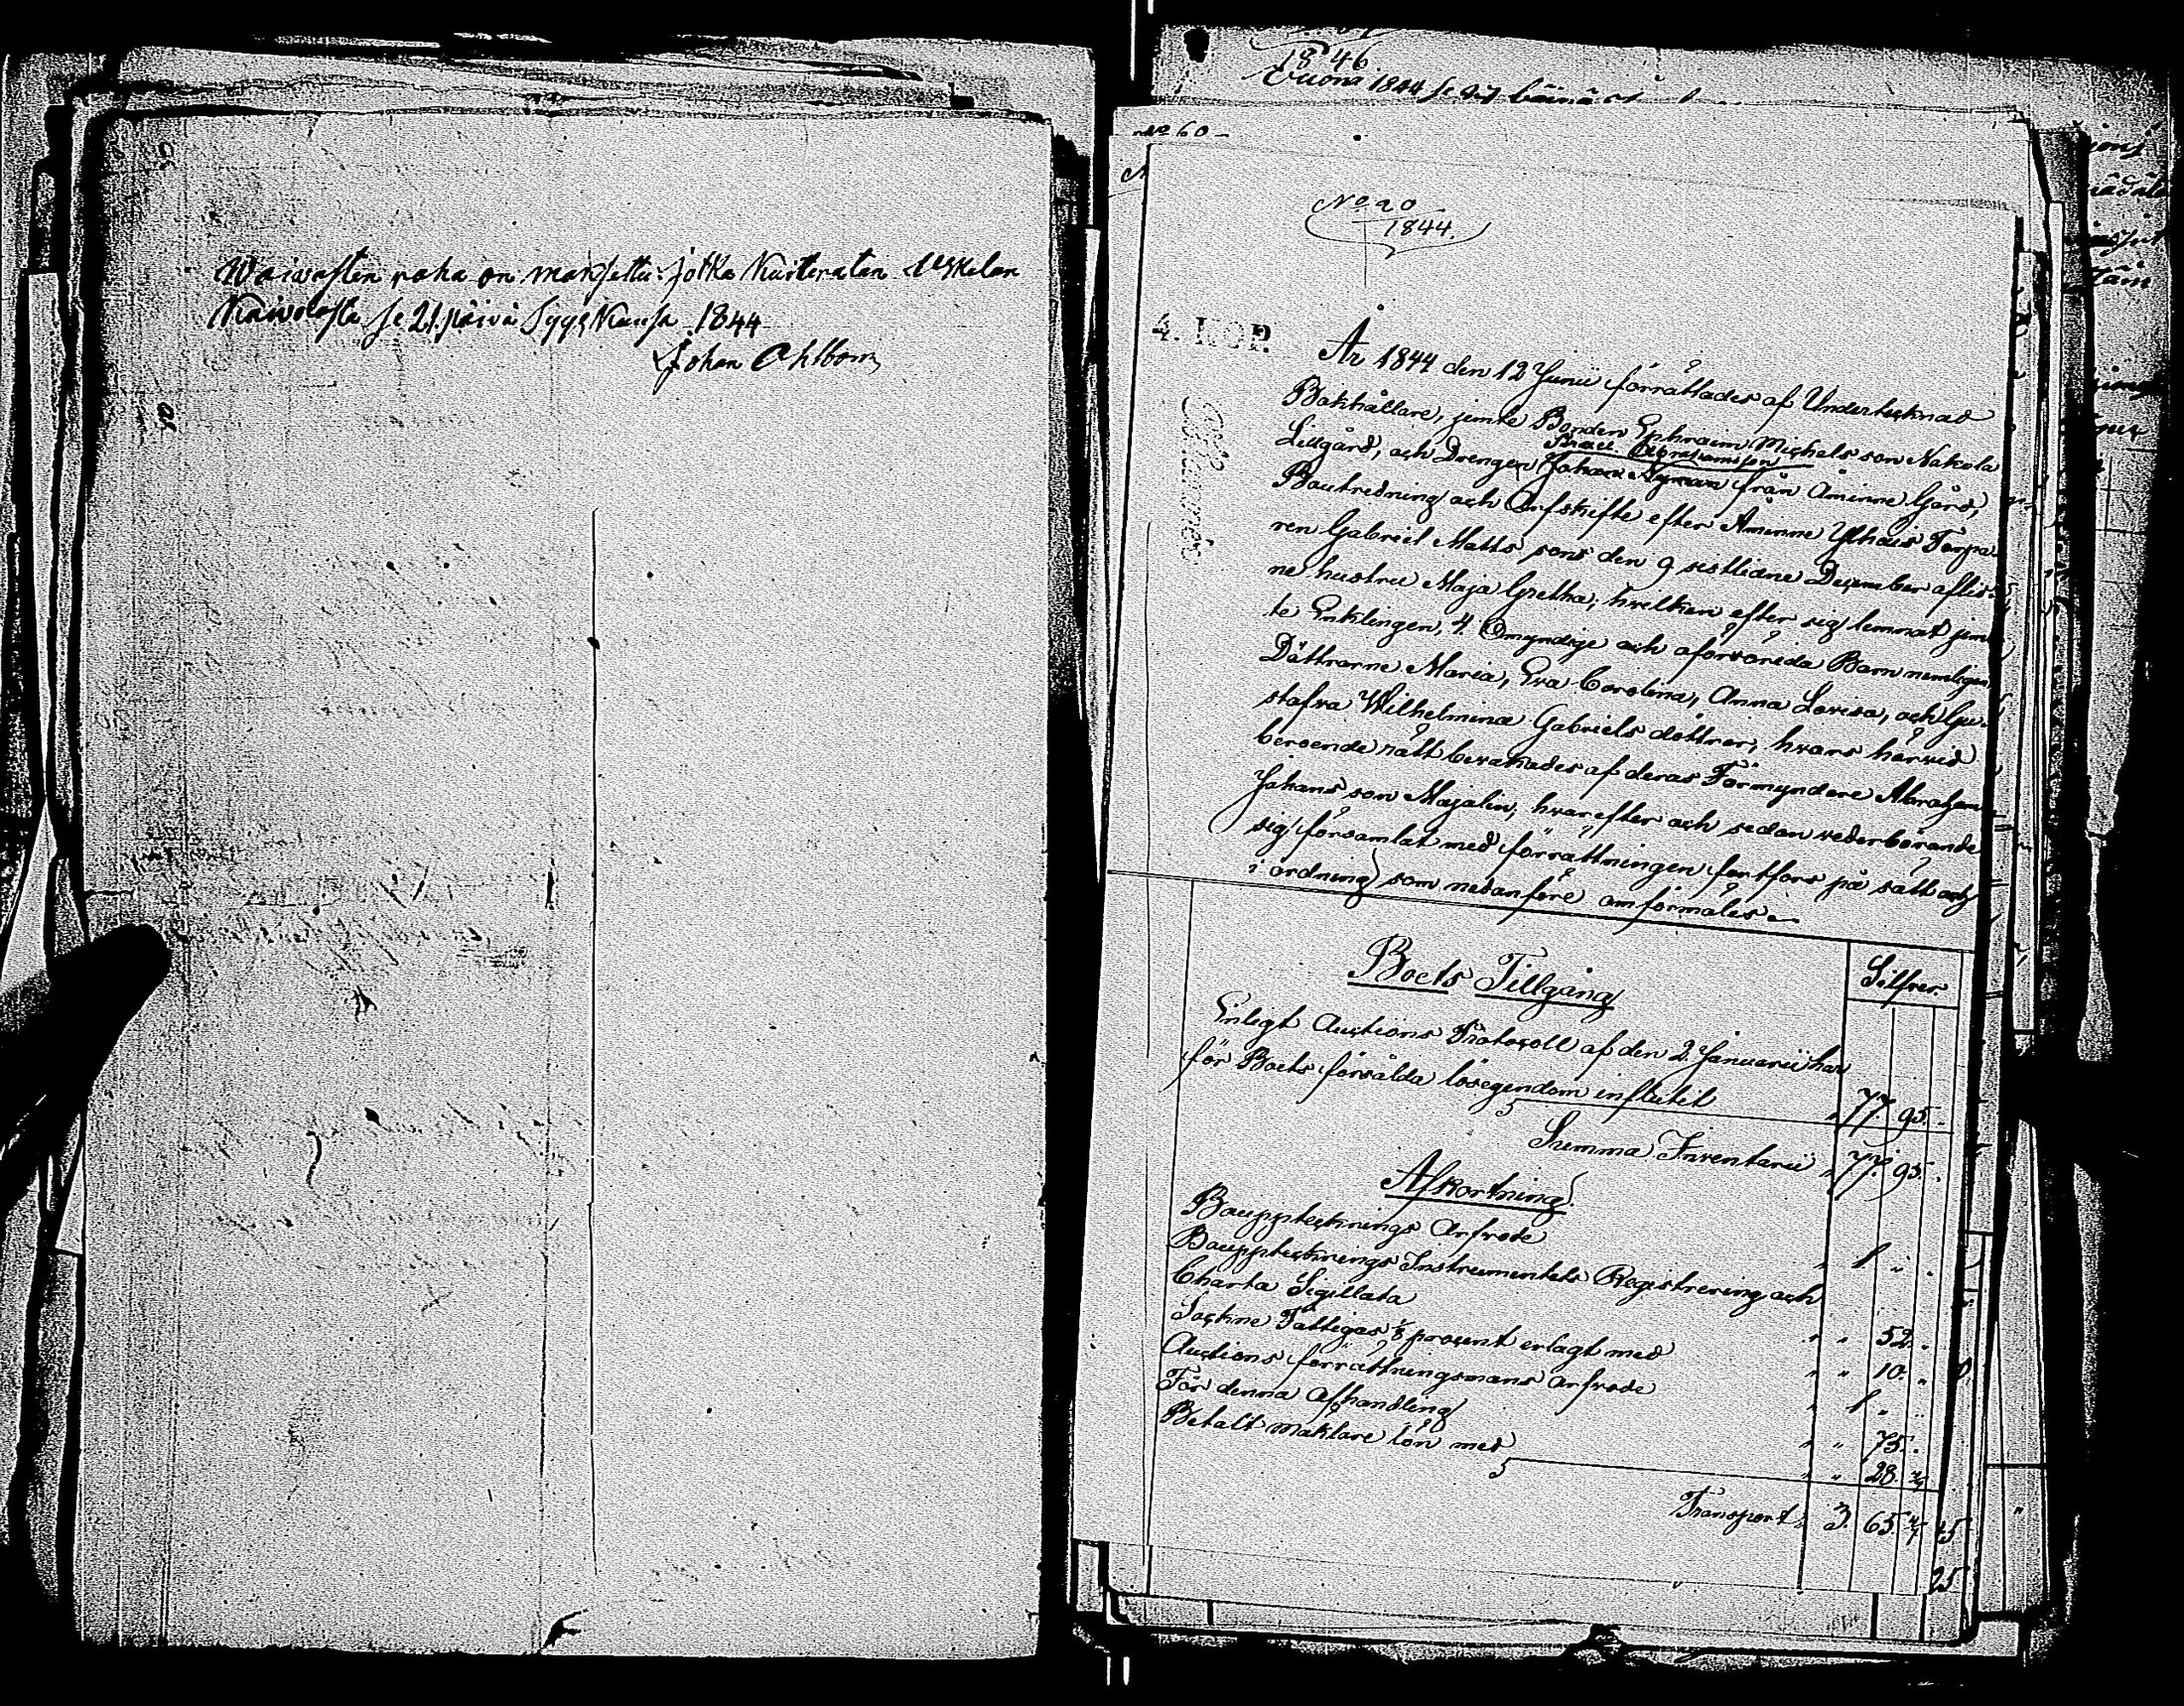 Waiwasten raha on maxsettu jotka Kuiteratan
Kaivolasta se 21. päivä Syys Kuusa 1844
Johan Ahlbom
1846
Vuona 1844 se
No 60
No 20
1844.
4. KOP.
År 1844 den 12 Junii förrättades af Undertecknad
Bokhållare, jemte Bonden Ephraim Michelsson Nakola
Isaac Abrahamsson
Lillgård, och Drengen Johan Nyman från Åminne Gård,
Boutredning och Arfskifte efter Åminne Ylhäis Torpa
ren Gabriel Matts sons den 9 sistlidne December aflid
ne hustru Maja Gretha; hvilken efter sig lemnat jem
te Enklingen, 4. Omyndige och oförsörjda Barn nemligen
Döttrarne Maria, Eva Carolina, Anna Lovisa, och Gu
stafva Wilhelmina Gabriels döttrar; hvars härvid
beroende rätt bevakades af deras Förmyndare Abraham
Johans son Majalin; hvarefter och sedan vederbörande
sig församlat med förrättningen fortfors på sätt och
i ordning som nedanföre omförmäles.
Boets Tillgång
Silfver.
Enligt Auctions Protocoll af den 2. Januarii har
för Boets försålda lösegendom influtit " 77. 95. "
Summa Inventarii " 77. 95. "
Afkortning.
Bouppteckningsarfvode " 1 " "
Bouppteckningsinstrumentets Registrering och
Charta Sigillata " " 52. "
Sockne Fattigas 1/8 procent erlagt med " " 10. "
Auctions förrättningsmans arfvode " 1 " "
För denna Afhandling " " 75. "
Betalt mäklare lön med " " 28. 4/7
Transport " 3. 65. 4/7
25